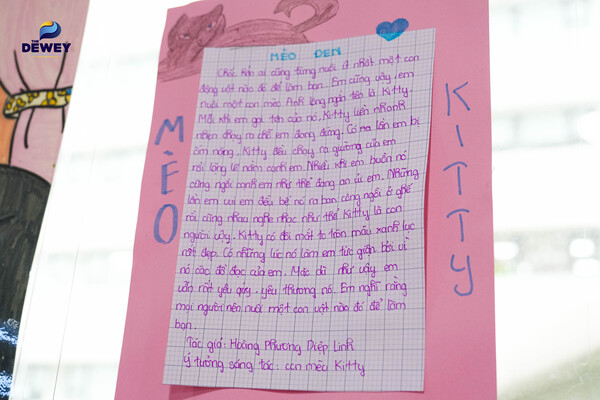 THE
DEWEY
MÈO ĐEN
Chắc hẳn ai cũng từng nuôi ít nhất một con
động vật nào đó để làm bạn. Em cũng vậy, em
nuôi một con mèo Anh lông ngắn tên là Kitty.
Mỗi khi em gọi tên của nó, Kitty liền nhanh
nhẹn chạy ra chỗ em đang đứng. Có ma lần em bị
ốm nặng. Kitty đều chạy ra giường của em
rồi lặng lẽ nằm cạnh em. Nhiều khi em buồn nó
cũng ngồi cạnh em như thể đang an ủi em. Những
lần em vui em đều bế nó ra ban công ngồi ở ghế
rồi cùng nhau nghe nhạc như thể Kitty là con
người vậy. Kitty có đôi mắt to tròn màu xanh lục
rất đẹp. Có những lúc nó làm em tức giận bởi vì
nó cào đồ đạc của em. Mặc dù như vậy em
vẫn rất yêu quý, yêu thương nó. Em nghĩ rằng
mọi người nên nuôi một con vật nào đó để làm
bạn.
Tác giả: Hoàng Phương Diệp Linh
Ý tưởng sáng tác: con mèo Kitty
MÈO
KITTY